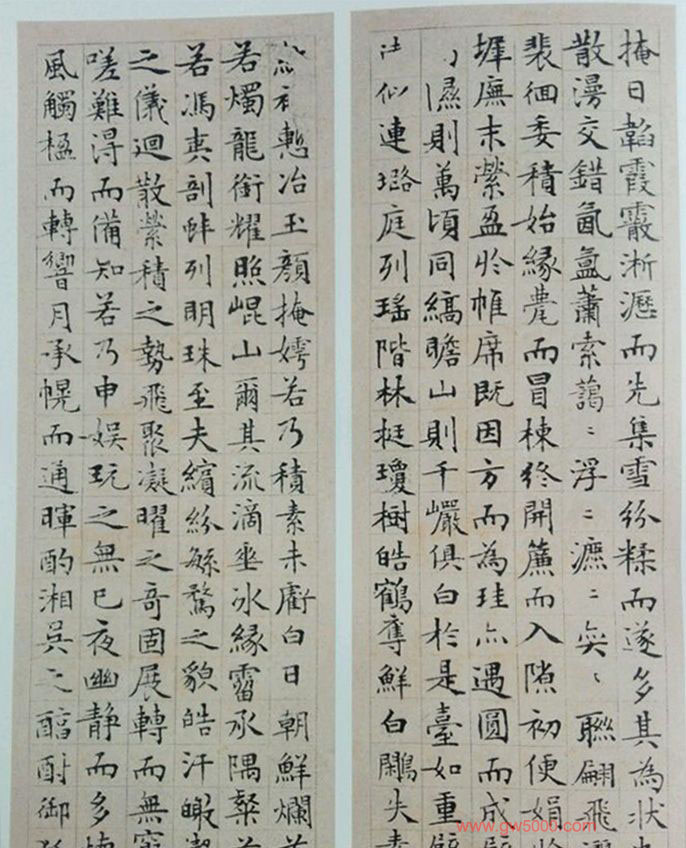 掩日韜霞霰淅瀝而先集雪紛糅而遂多其為狀
散漫交錯氤氳蕭索藹〻浮〻瀌〻奕〻聯翩飛灑
裴徊委積始緣甍而冒棟終開簾而入隙初便娟於
墀廡末縈盈於帷席既因方而為珪亦遇圓而成
隰則萬頃同縞瞻山則千巖俱白於是臺如重
似連璐庭列瑤階林挺瓊樹皓鶴奪鮮白鷴失素
慙冶玉顏掩嫮若乃積素未虧白日朝鮮爛
若燭龍銜耀照崐山爾其流滴垂冰緣霤承隅粲
若馮夷剖蚌列明珠至夫繽紛繁騖之貌皓汗曒潔
之儀迴散縈積之勢飛聚凝曜之奇固展轉而無窮
嗟難得而備知若乃申娛玩之無已夜幽靜而多懷
風觸楹而轉響月承幌而通暉酌湘吳之醇酎御
www.gw5000.com